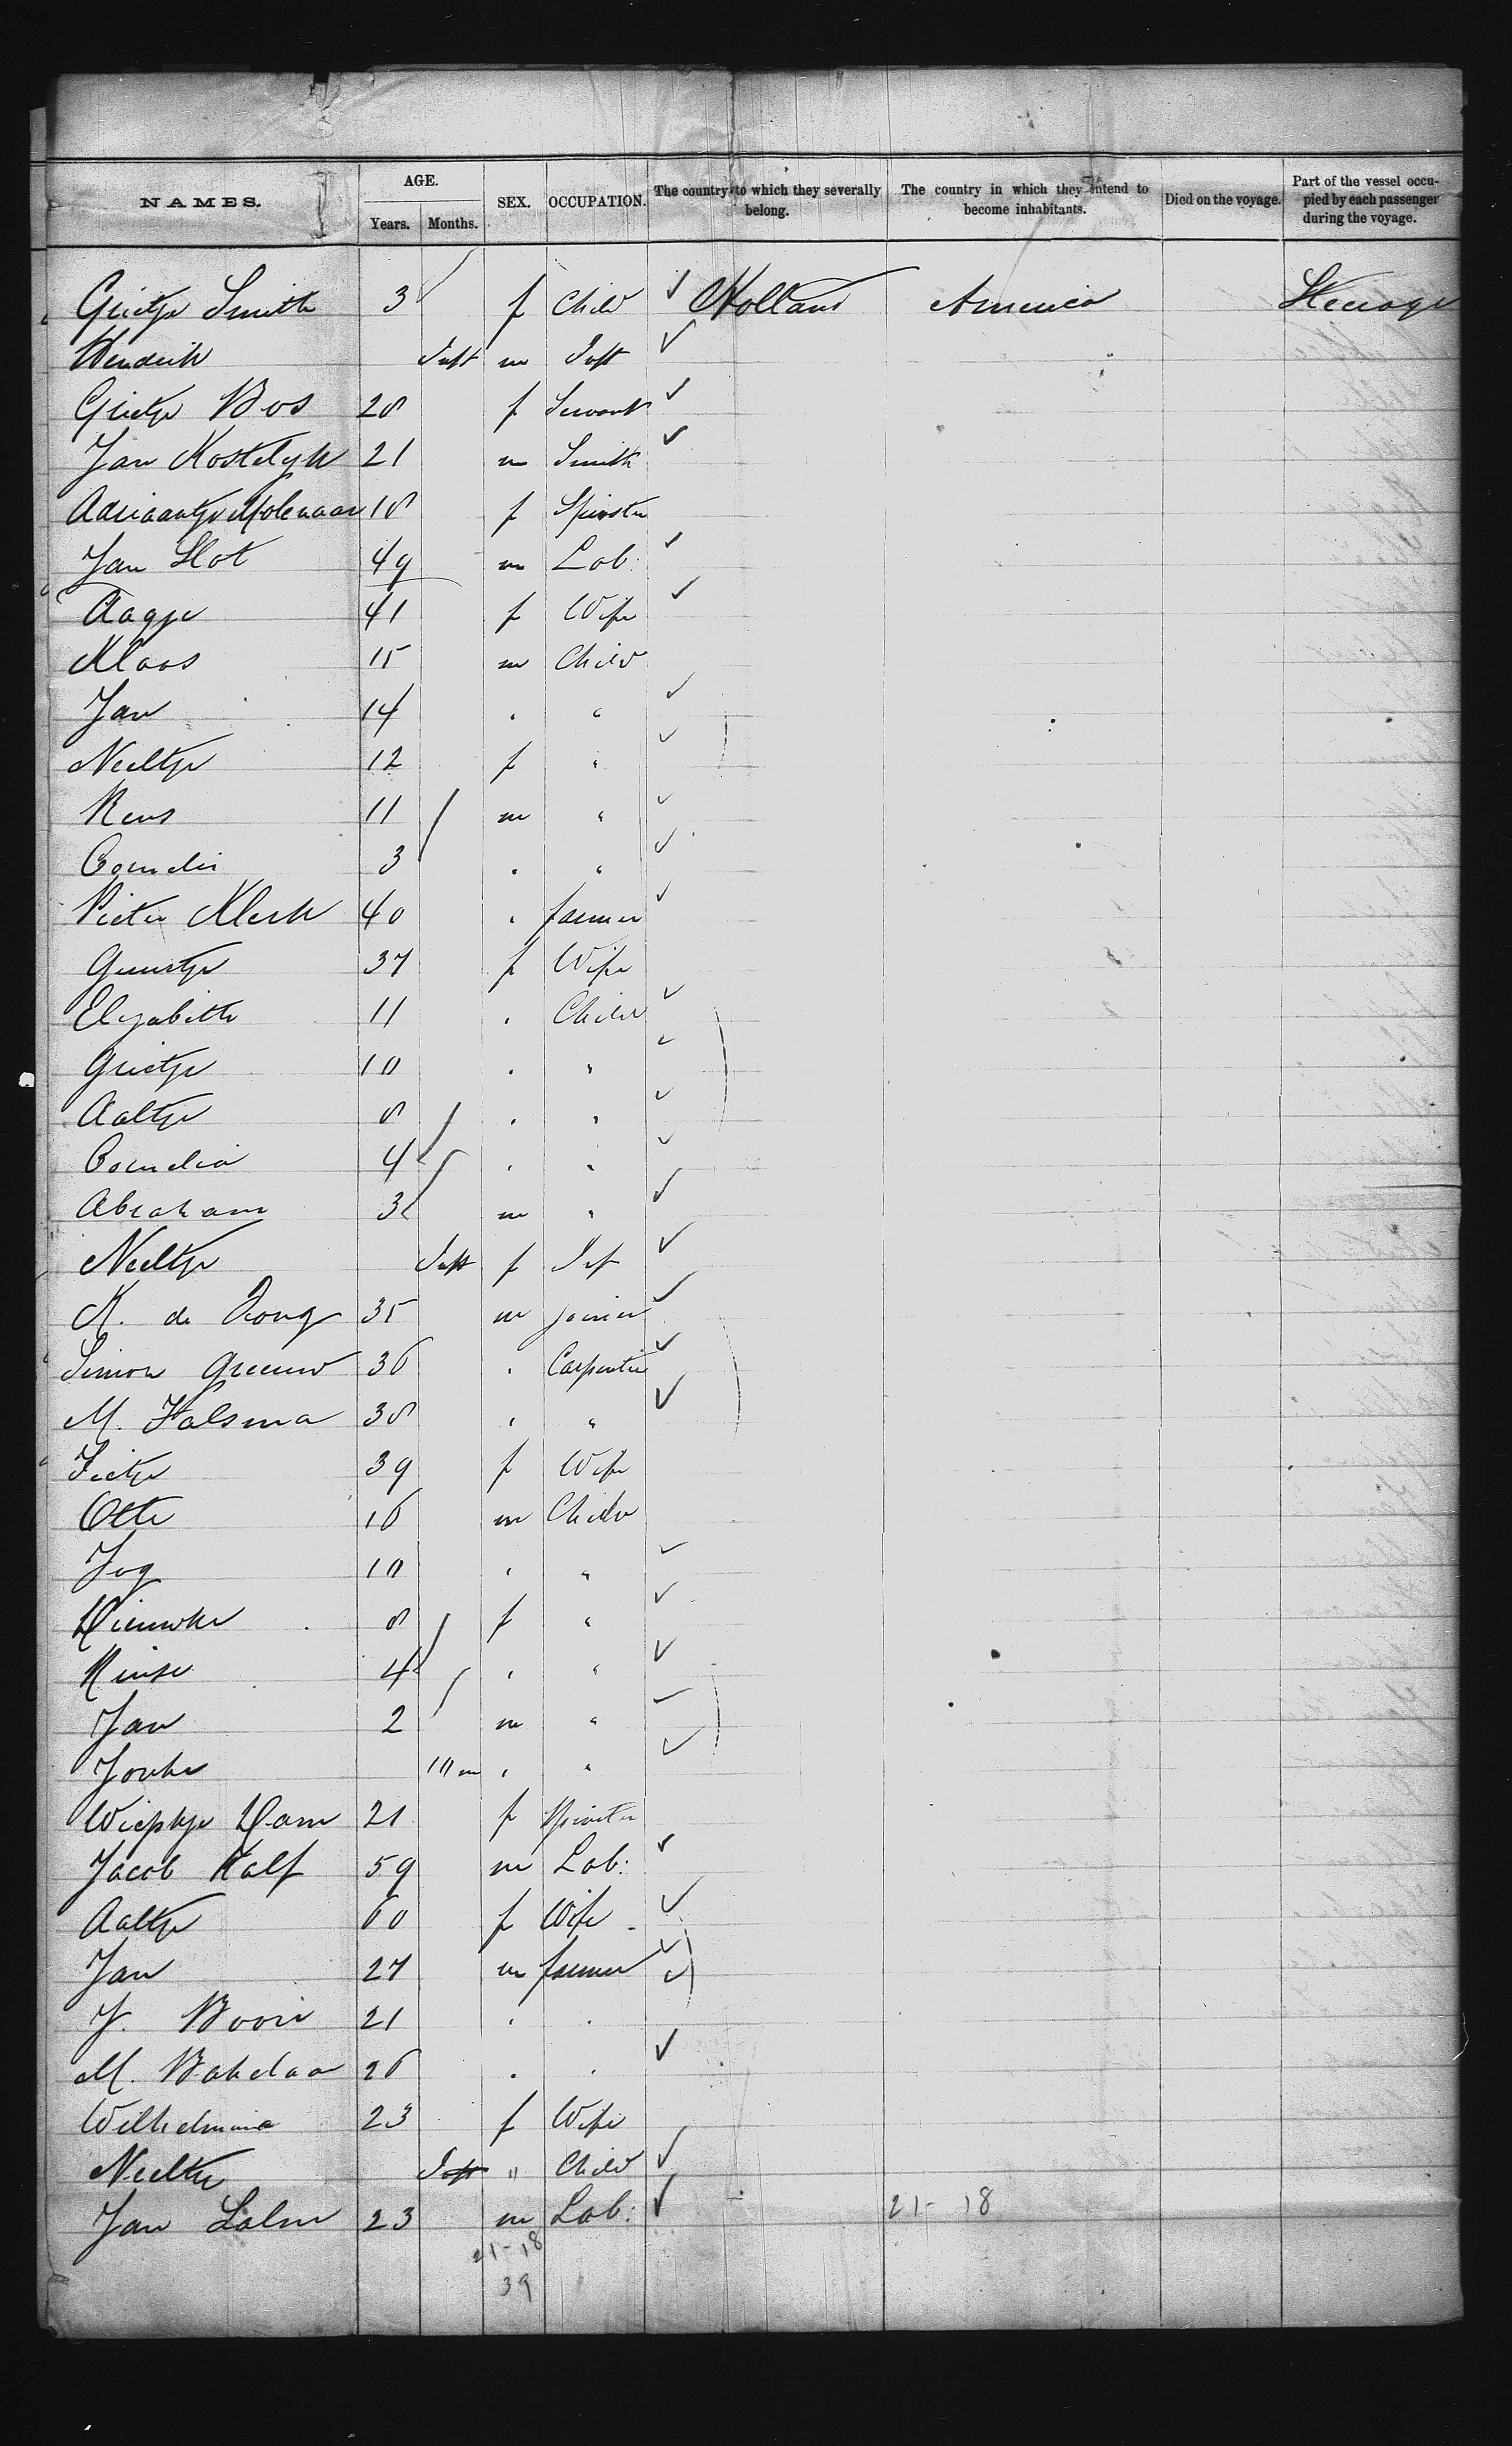 NAMES. AGE. Years. Months. SEX. OCCUPATION. The country to which they severally belong. The country in which they intend to become inhabitants. Died on the voyage. Part of the vessel occupied by each passenger during the voyage.
Grietje Smith 3 f Child Holland America Steerage
Hendrik Inft m Inft
Grietje Bos 28 f Servant
Jan Kostelyk 21 m Smith
Adriaantje Molenaar 18 f Spinster
Jan Slot 49 m Lab:
Aagje 41 f Wife
Klaas 15 m Child
Jan 14 " "
Neeltje 12 f "
Rens 11 m "
Cornelis 3 " "
Pieter Klerk 40 " farmer
Guurtje 37 f Wife
Elizabeth 11 " Child
Grietje 10 " "
Aaltje 8 " "
Cornelia 4 " "
Abraham 3 m "
Neeltje Inft f Inf
K. de Jong 35 m joiner
Simon Greeuw 36 " Carpenter
M. Halsma 38 " "
Fietje 39 f Wife
Otte 16 m Child
Jog 10 " "
Dieuwke 8 f "
Rinse 4 " "
Jan 2 m "
Jouke 10 m " "
Wiepkje Dam 21 f Spinster
Jacob Kalf 59 m Lab:
Aaltje 60 f Wife
Jan 27 m farmer
J. Booi 21 " "
M. Bakelaar 26 " "
Wilhelmina 23 f Wife
Neeltje Inft " Child
Jan 23 m Lab: 21-18
21-18
39